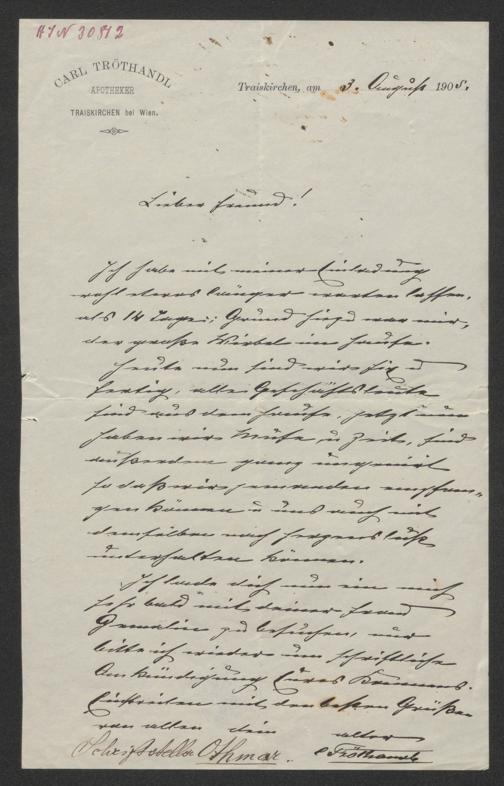 HIN 30812
CARL TRÖTHANDL
APOTHEKER
TRAISKIRCHEN bei Wien.
Traiskirchen, am 3. August 1905.
Lieber Freund!
Ich habe mit meiner Einladung
wohl etwas länger warten lassen,
als 14 Tage; Grund hiezu war mir,
der große Wirbel im Hause.
Heute nun sind wir fix u
fertig, alle Geschäftsleute
sind aus dem Hause, jetzt nun
haben wir Muße, u Zeit, sind
außerdem ganz ungenirt
so daß wir jemanden empfan-
gen können u uns auch mit
demselben nach Herzenslust
unterhalten können.
Ich lade dich nun ein mich
sehr bald mit deiner Frau
Gemalin zu besuchen, nur
bitte ich wieder um schriftliche
Ankündigung Eures Kommens.
mit den besten Grüßen
von allen dein alter
C Tröthandl
Schriftsteller Othmar.